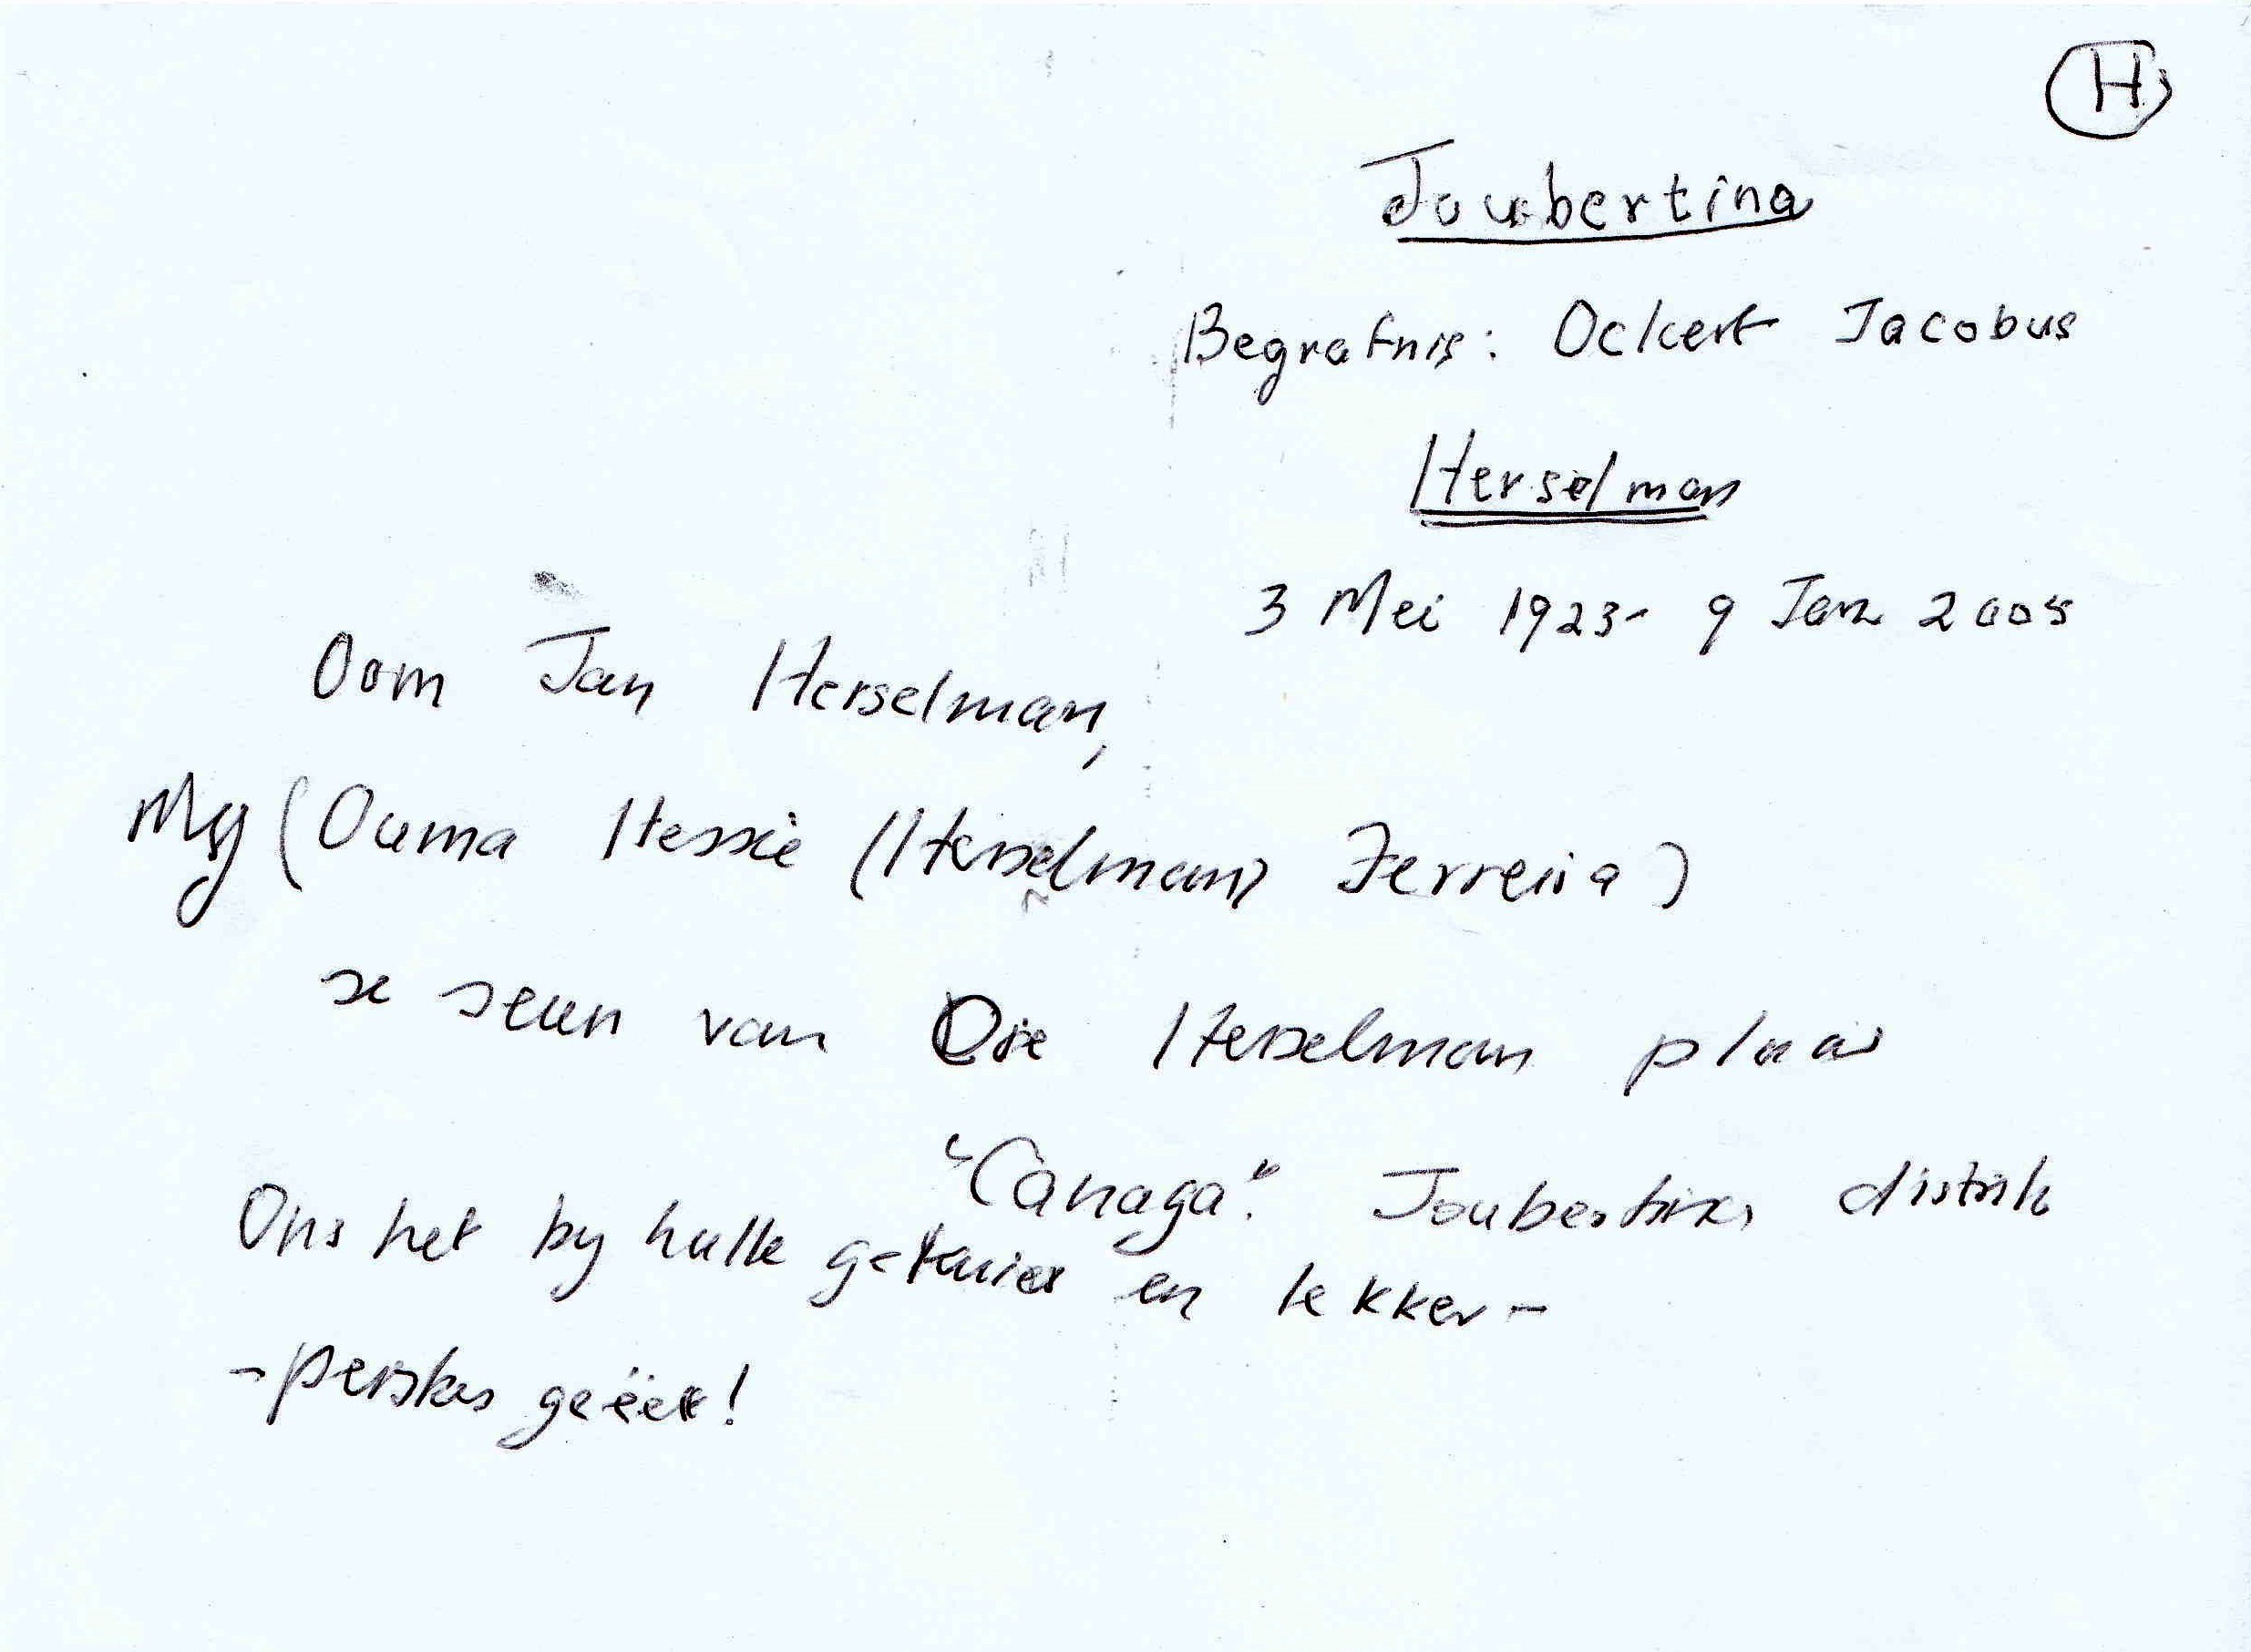 H
Joubertina
Begrafnis: Ockert Jacobus
Herselman
3 Mei 1923- 9 Jan 2005
Oom Jan Herselman,
My (Ouma Hessie (Herselman) Ferreira)
se seun van Die Herselman plaas
"Canaga". Joubertina distrik
Ons het by hulle gekuier en lekker-
-perskes geëet!